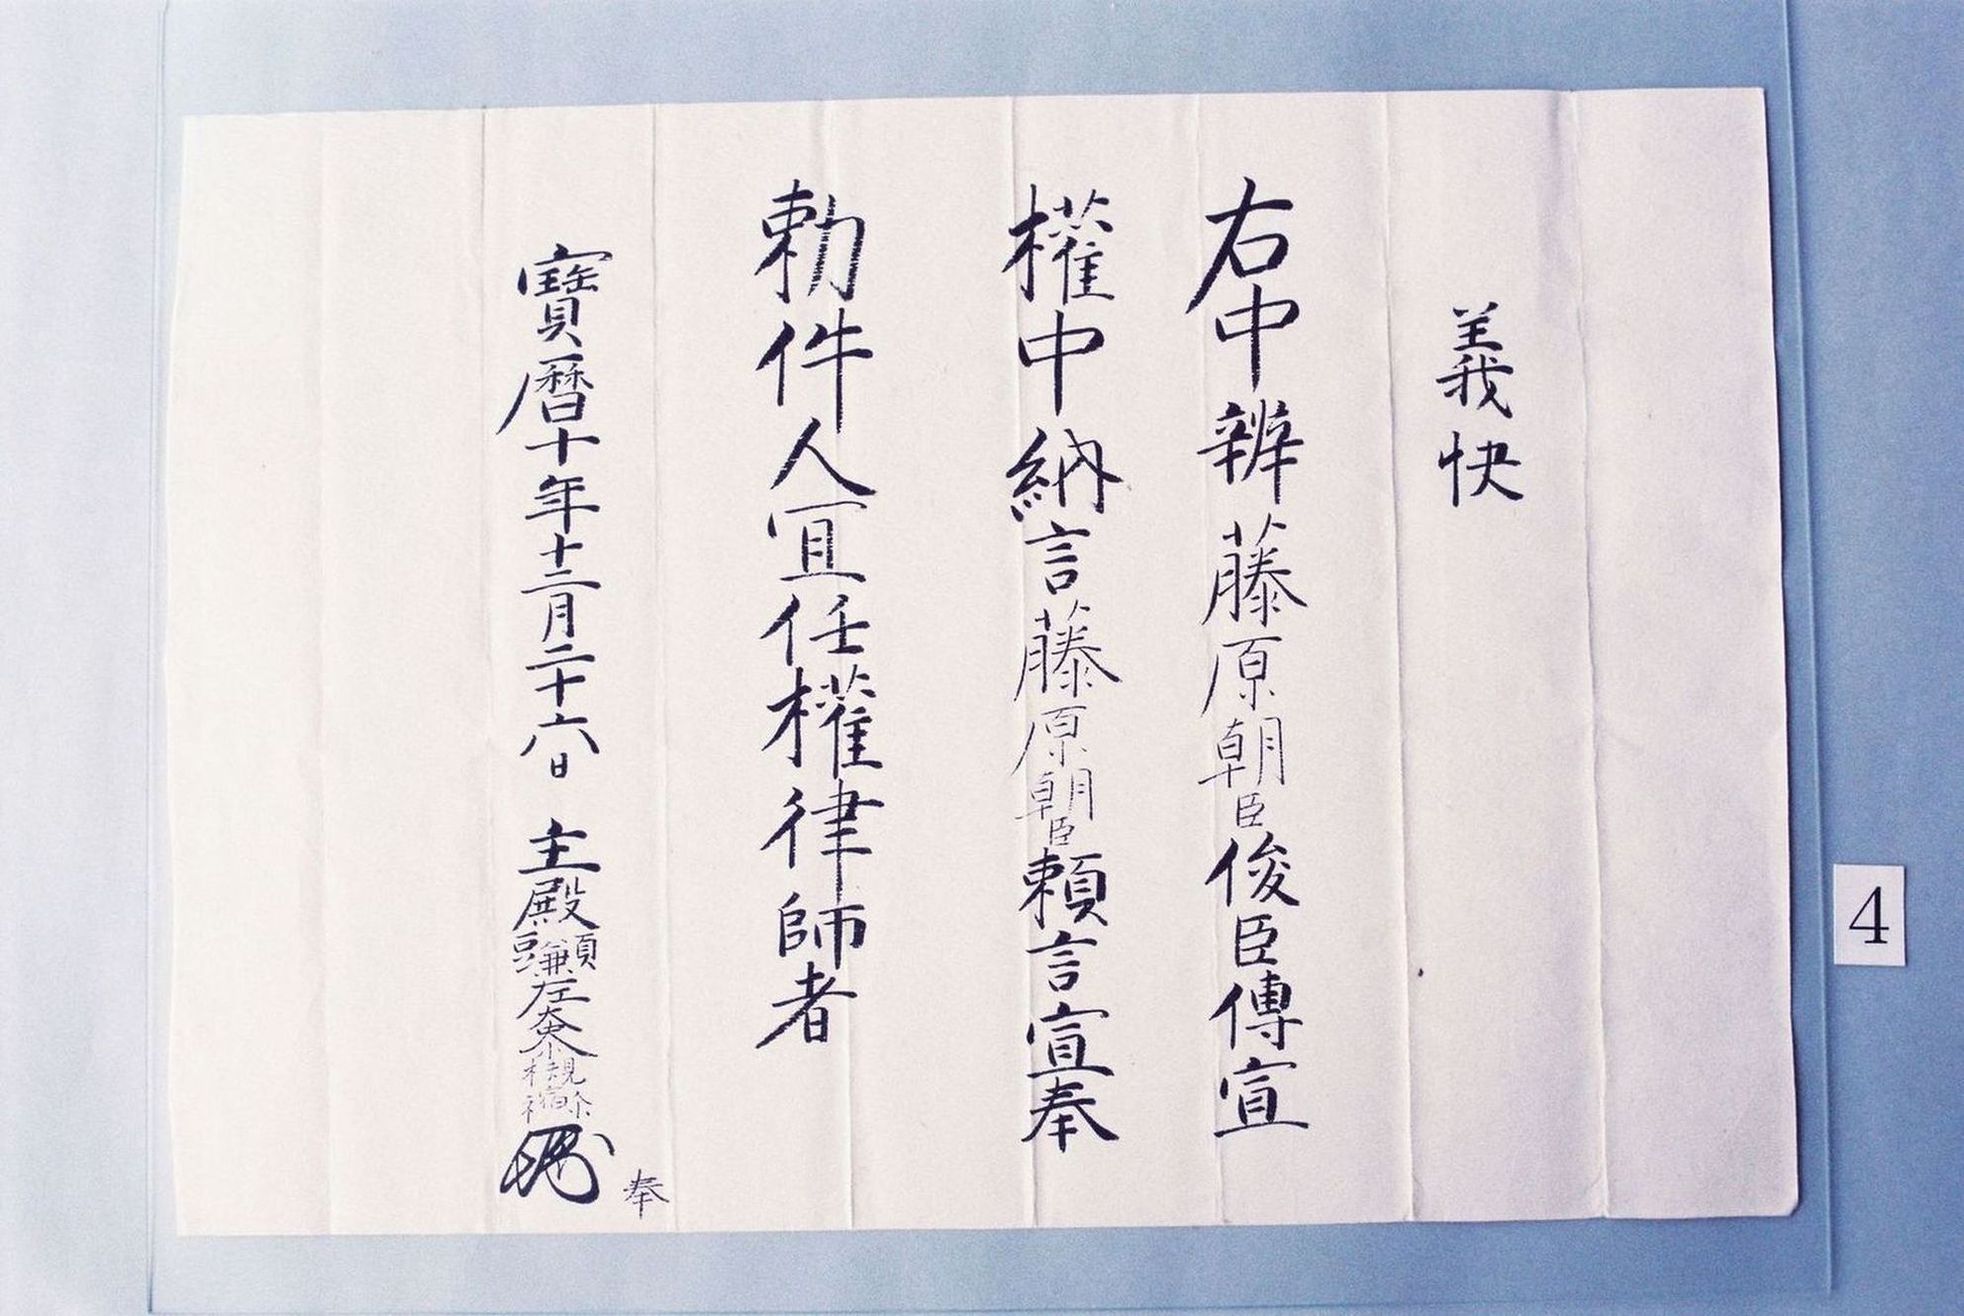 義快
右中辨藤原朝臣俊臣傳宣
權中納言藤原朝臣賴言宣奉
勅件人宜任權律師者
寶曆十年十二月二十六日 主殿頭兼左大史小槻宿祢
奉
4